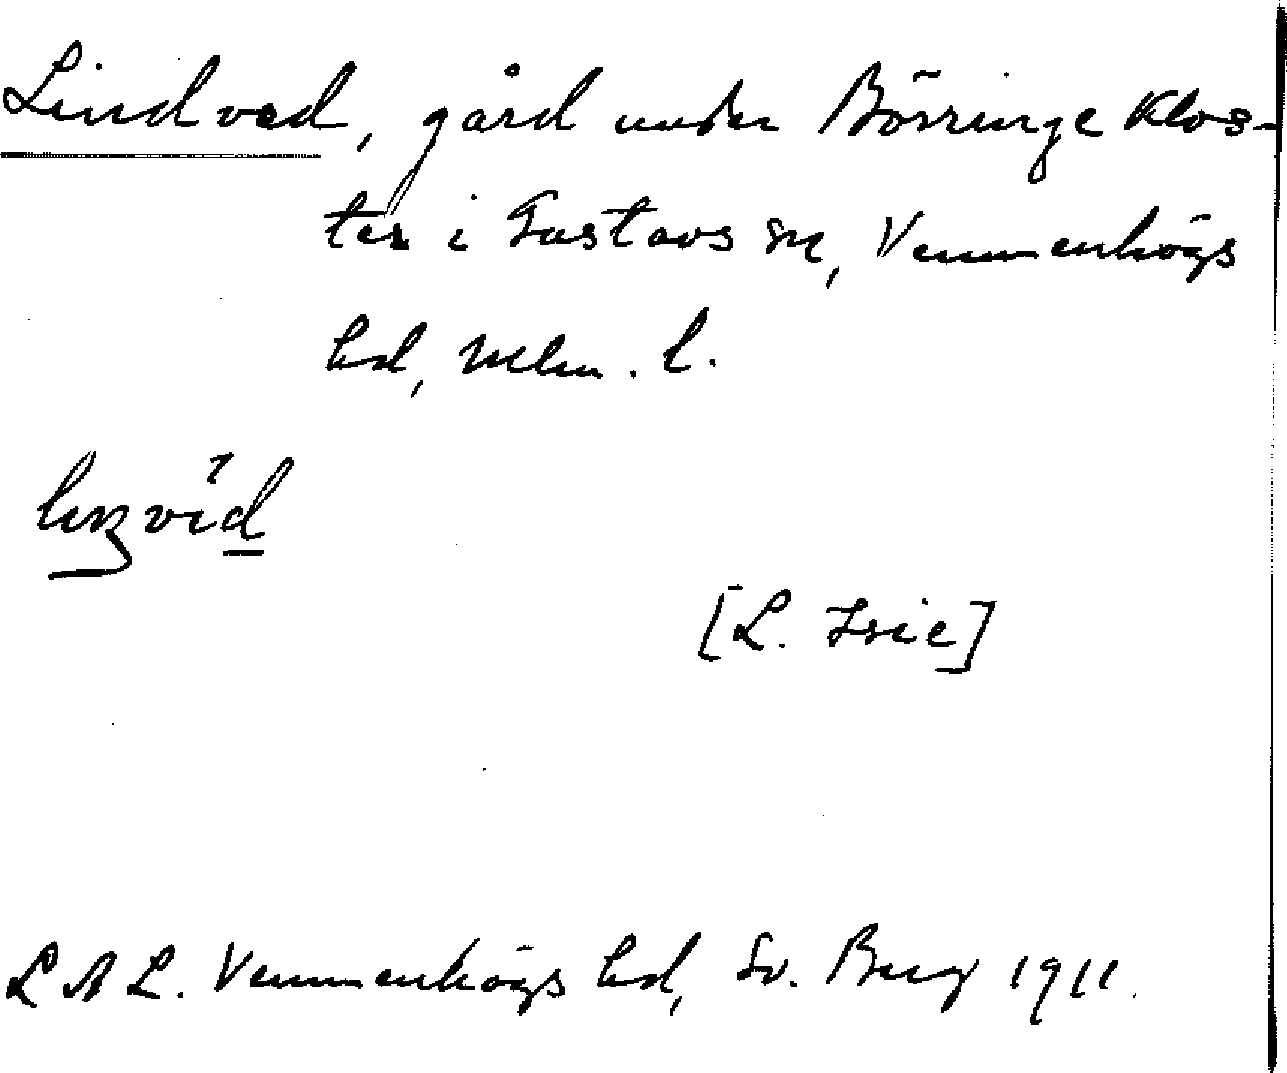 Lindved, gård under Börringe Klos-
ter i Gustavs sn, Vemmenhögs
hd, Mlm. l.
[L. Isie]
L A L. Vemmenhögs hd, Sv. Berg 1911.